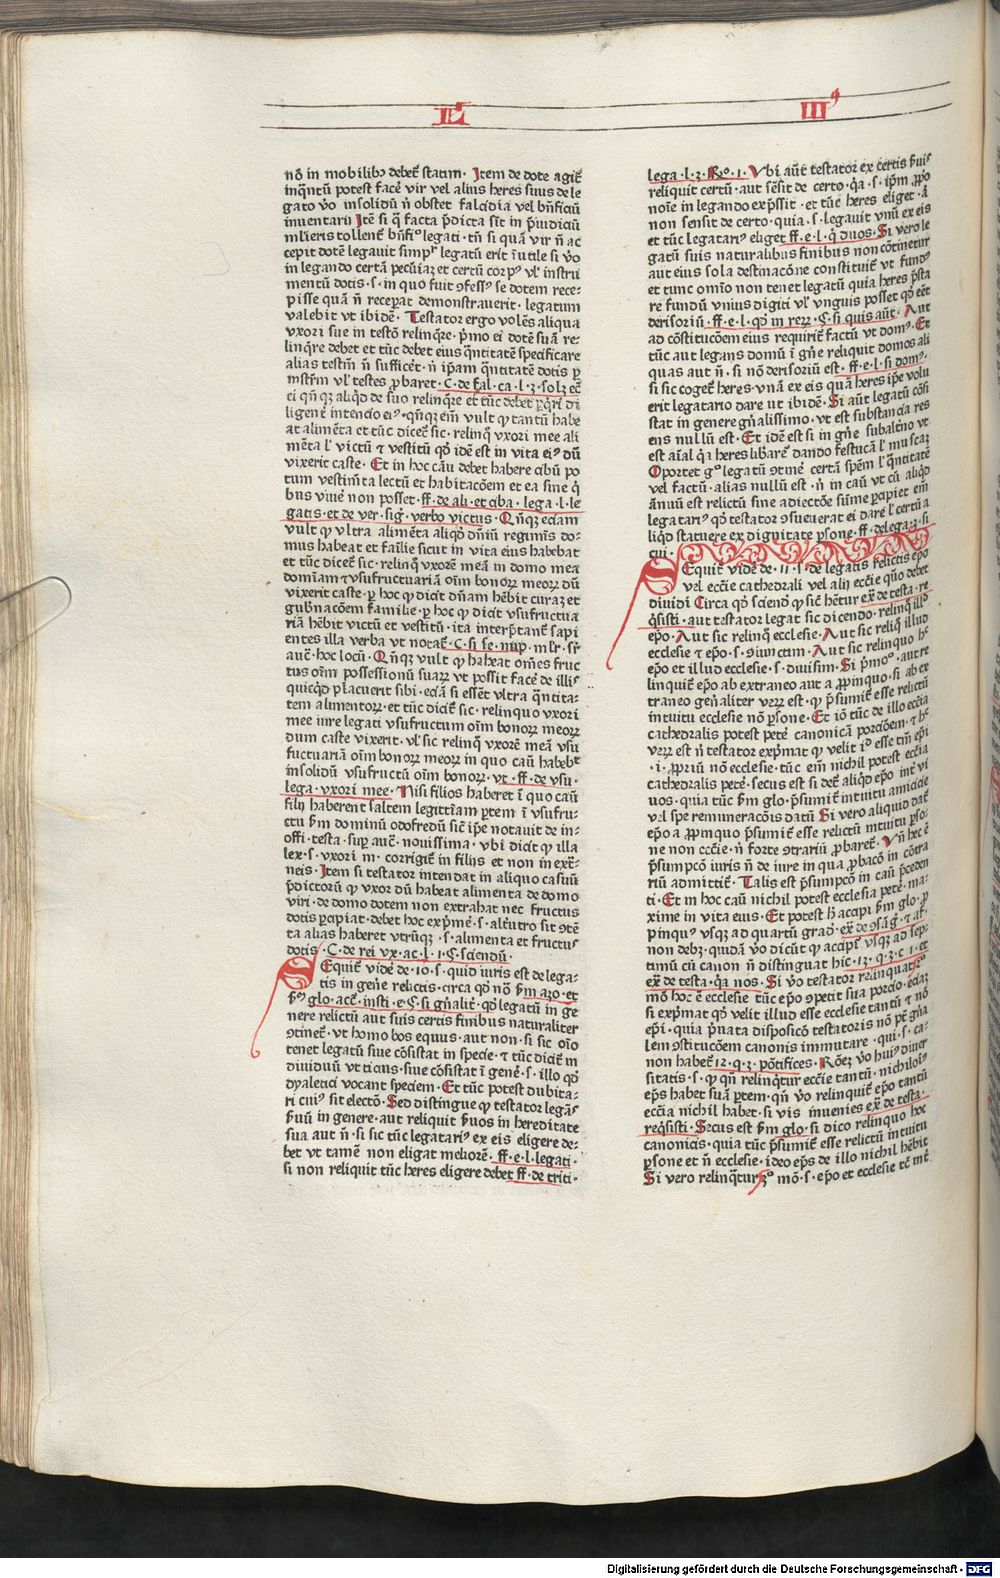 L
IIII
nō in mobilibꝰ debet̄ statim · Item de dote agit̄
inq̄ntū potest facē vir vel alius heres suus de le
gato v̊o insolidū n̄ obstet falcidia vel bn̄ficiū
inuentarii Itē si q̄ facta p̄dicta sīt in p̄iudiciū
ml̄ieris tollent̄ bn̄fi⁰ legati · tn̄ si quā vir n̄ ac
cepit dotē legauit simpʳ legatū erit īutile si v̊o
in legando certā pecūiaʒ et certū corpꝰ vl̄ instru
mentū dotis · s · in quo fuit ꝯfessꝰ se dotem rece-
pisse quā n̄ recepat demonstrauerit · legatum
valebit vt ibidē · Testator ergo volēs aliqua
vxori sue in testō relinq̄re · pͥmo ei dotē suā re-
linq̄re debet et tūc debet eius q̄ntitatē specificare
alias testm̄ n̄ sufficēt · n̄ ipam q̄ntitatē dotis ꝑ
mstr̄m vl̄ testes ꝓbaret · C · de fal · ca · l · 3 · solʒ et̄
ei qn̄qʒ aliqͦd de suo relinq̄re et tūc debet ꝑqͥri di
ligent̄ intencio eiꝰ · qn̄qʒ em̄ vult ꝙ tantū habe
at alimēta et tūc dicet̄ sic · relinq̄ vxori mee ali
mēta l̄ victū ⁊ vestitū qͦd idē est in vita eiꝰ dū
vixerit caste · Et in hoc cāu debet habere cibū po
tum vestim̄ta lectū et habitacōem et ea sine qͥ
bus viuē non posset · ff · de ali · et ciba · lega · l · le
gatis · et de ver · siḡ · verbo victus · Qn̄qʒ eciam
vult ꝙ vltra alimēta aliqͦd dn̄iū regimīs do-
mus habeat et failie sicut in vita eius habebat
et tūc dicet̄ sic · relinq̄ vxorē meā in domo mea
domīam ⁊ vsufructuariā oīm bonoꝝ meoꝝ dū
vixerit caste · ꝑ hoc ꝙ dicit dn̄am hēbit curaʒ et
gubn̄acōem familie · ꝑ hoc ꝙ dicit vsufructua
riā hēbit victū et vestitū · ita interp̄tant̄ sapi
entes illa verba vt notat̄ · C · si se · nup · ml̄r · sr̄
auc̄ · hoc locū · Qn̄qʒ vult ꝙ habeat om̄es fruc
tus oīm possessionū suaꝝ vt possit facē de illiˢ
quicqͦd placuerit sibi · eciā si essēt vltra q̄ntita-
tem alimentoꝝ · et tūc dicit̄ sic · relinquo vxori
mee iure legati vsufructum oīm bonoꝝ meoꝝ
dum caste vixerit · vl̄ sic relinq̄ vxorē meā vsu
fuctuariā oīm bonoꝝ meoꝝ in quo caū habebᵗ
insolidū vsufructū oīm bonoꝝ · vt · ff · de vsu ·
lega · vxori mee · Nisi filios haberet ī quo caū
filij haberent saltem legittīam ꝑtem ī vsufru-
ctu ẜm dominū odofredū sic̄ ipē notauit de in-
offi · testa · suꝑ auc̄ · nouissima · vbi dicit ꝙ illa
lex · s · vxori m̄ · corrigit̄ in filiis et non in extͣ-
neis · Item si testator intendat in aliquo casuū
p̄dictorū ꝙ vxor dū habeat alimenta de domo
viri · de domo dotem non extrahat nec fructus
dotis ꝑcipiat · debet hoc exp̄mē · s · alt̄utro sit ꝯtē
ta alias haberet vtrūqʒ · s · alimenta et fructuˢ
dotis · C · de rei vx · ac · l · 1 · § · sciendū ·
Sequit̄ vidē de · 10 · s · quid iuris est de lega-
tis in genē relictis · circa qͦd nō ẜm azo · et
ẜm̄ glo · ace · insti · e · § · si gn̄alit̄ · qͦd legatū in ge
nere relictū aut suis certis finibus naturaliter
ꝯtinet̄ · vt homo bos equus · aut non · si sic oīo
tenet legatū siue cōsistat in specie · ⁊ tūc dicit̄ in
diuiduū vt ticius · siue cōsistat ī genē · s · illo qͦd
dyaletici vocant speciem · Et tūc potest dubita-
ri cuiꝰ sit electō · Sed distingue ꝙ testator legās
ẜuū in genere · aut reliquit ẜuos in hereditate
sua aut n̄ · si sic tūc legatariꝰ ex eis eligere de-
bet vt tamē non eligat meliorē · ff · e · l · legati ·
si non reliquit tūc heres eligere debet ff · de triti ·
lega · l · 3 · Rͦ · 1 · Vbi aūt testator ex certis ẜuiˢ
reliquit certū · aut sēsit de certo · qͣ · s · ip̄m ꝓpo
noīe in legando exp̄ssit · et tūc heres eliget · a̅
non sensit de certo · quia · s · legauit vnū ex eis
et tūc legatariꝰ eliget ff · e · l · qͥ duos · Si vero le
gatū suis naturalibus finibus non cōtinetur
aut eius sola destinacōne constituit̄ vt fundꝰ
et tunc om̄io non tenet legatū quia heres p̄sta
re fundū vnius digiti vl̄ vnguis posset qͦd eēt
derisoriū · ff · e · l · qͦd in reꝝ · § · si quis aūt · Aut
ad cōstitucōem eius requirit̄ factū vt domꝰ · Et
tūc aut legans domū ī gn̄e reliquit domos ali
quas aut n̄ · si nō derisoriū est · ff · e · l · si domꝰ ·
si sic coget̄ heres · vnā ex eis quā heres ipē volu
erit legatario dare ut ibidē · Si aūt legatū cōsi
stat in genere gn̄alissimo · vt est substancia res
ens nullū est · Et idē est si in gn̄e subalt̄no vt
est aīal qͣ heres liƀaret̄ dando festucā l̄ muscaʒ
Oportet gͦ legatū ꝯtinē certā spēm l̄ q̄ntitatē
vel factū · alias nullū est · n̄ in caū vt cū aliqͦd
ānuū est relictū sine adiectōe sūme ꝑcipiet em̄
legatariꝰ qͦd testator ꝯsueuerat ei dare l̄ certū a
liqͦd statuere ex dignitate ꝑsone · ff · de lega · 3 · si
cui ·
Sequit̄ vidē de · 11 · s · de legatis relictis ep̄o
vel ecc̄ie cathedrali vel alij ecc̄ie quō debēt
diuidi Circa qͦd sciend̄ ꝙ sic̄ hētur ext̄ de testa · re
qͥsisti · aut testator legat sic dicendo · relinq̄ illͦ
ep̄o · Aut sic relinq̄ ecclesie · Aut sic reliq̄ illud
ecclesie ⁊ ep̄o · s · ꝯiunctim · Aut sic relinquo hͨ
ep̄o et illud ecclesie · s · diuisim · Si pͥmoº · aut re
linquit̄ ep̄o ab extraneo aut a ꝓpinquo · si ab ex
traneo gen̄aliter veꝝ est · ꝙ p̄sumit̄ esse relictū
intuitu ecclesie nō ꝑsone · Et iō tūc de illo ecc̄ia
cathedralis potest petē canonicā porciōem · ⁊ hͨ
veꝝ est n̄ testator exp̄mat ꝙ velit iͦ esse tm̄ ep̄i
· i · ꝓpriū nō ecclesie · tūc em̄ nichil potest ecc̄ia
cathedralis petē · secus est si det̄ aliqͦd ep̄o int̄ vi
uos · quia tūc ẜm glo · p̄sumit̄ intuitu amicicie
vel spe remuneracōis datū Si vero aliquid dat̄
ep̄o a ꝓpinquo p̄sumit̄ esse relictū intuitu ꝑso-
ne non ecc̄ie · n̄ forte ꝯtrariū ꝓbaret̄ · Vn̄ hec ē
p̄sumpcō iuris n̄ de iure in qua ꝓbacō in cōtra
riū admittit̄ · Talis est p̄sumpcō in caū p̄ceden
ti · Et in hoc caū nichil potest ecclesia petē · ma-
xime in vita eius · Et potest ħ accipi ẜm glo · ꝓ
pinquꝰ vsqʒ ad quartū gradͥ · ext̄ de ꝯsāḡ · ⁊ af ·
non debʒ · quidā v̊o dicūt ꝙ accipit̄ vsqʒ ad sep-
timū cū canon n̄ distinguat hic · 12 · q · 3 · c 1 · et
ext̄ de testa · qͣ nos · Si v̊o testator relinquat 2º
mō hoc ē ecclesie tūc ep̄o ꝯpetit sua porcio · eciaʒ
si exp̄mat qͦd velit illud esse ecclesie tantū ⁊ nō
ep̄i · quia pͥuata disposicō testatoris nō pt̄ gn̄a
lem ꝯstitucōem canonis immutare · qui · s · ca-
non habet̄ 12 · q · 3 · pōtifices · Rōeʒ v̊o huiꝰ diuer
sitatis · s · ꝙ qn̄ relinqͥtur ecc̄ie tantū · nichiloīꝰ
ep̄s habet suā ꝑtem · qn̄ v̊o relinquit̄ ep̄o tantū
ecc̄ia nichil habet · si vis inuenies ext̄ de testa ·
reqͥsisti · Secus est ẜm glo · si dico relinquo hoc
canonicis · quia tūc p̄sumit̄ esse relictū intuitu
ꝑsone et n̄ ecclesie · ideo ep̄s de illo nichil hēbit
Si vero relinqͥtur 3º mō · s · ep̄o et ecclesie tc̄ mͭ
Digitalisierung gefördert durch die Deutsche Forschungsgemeinschaft · DFG